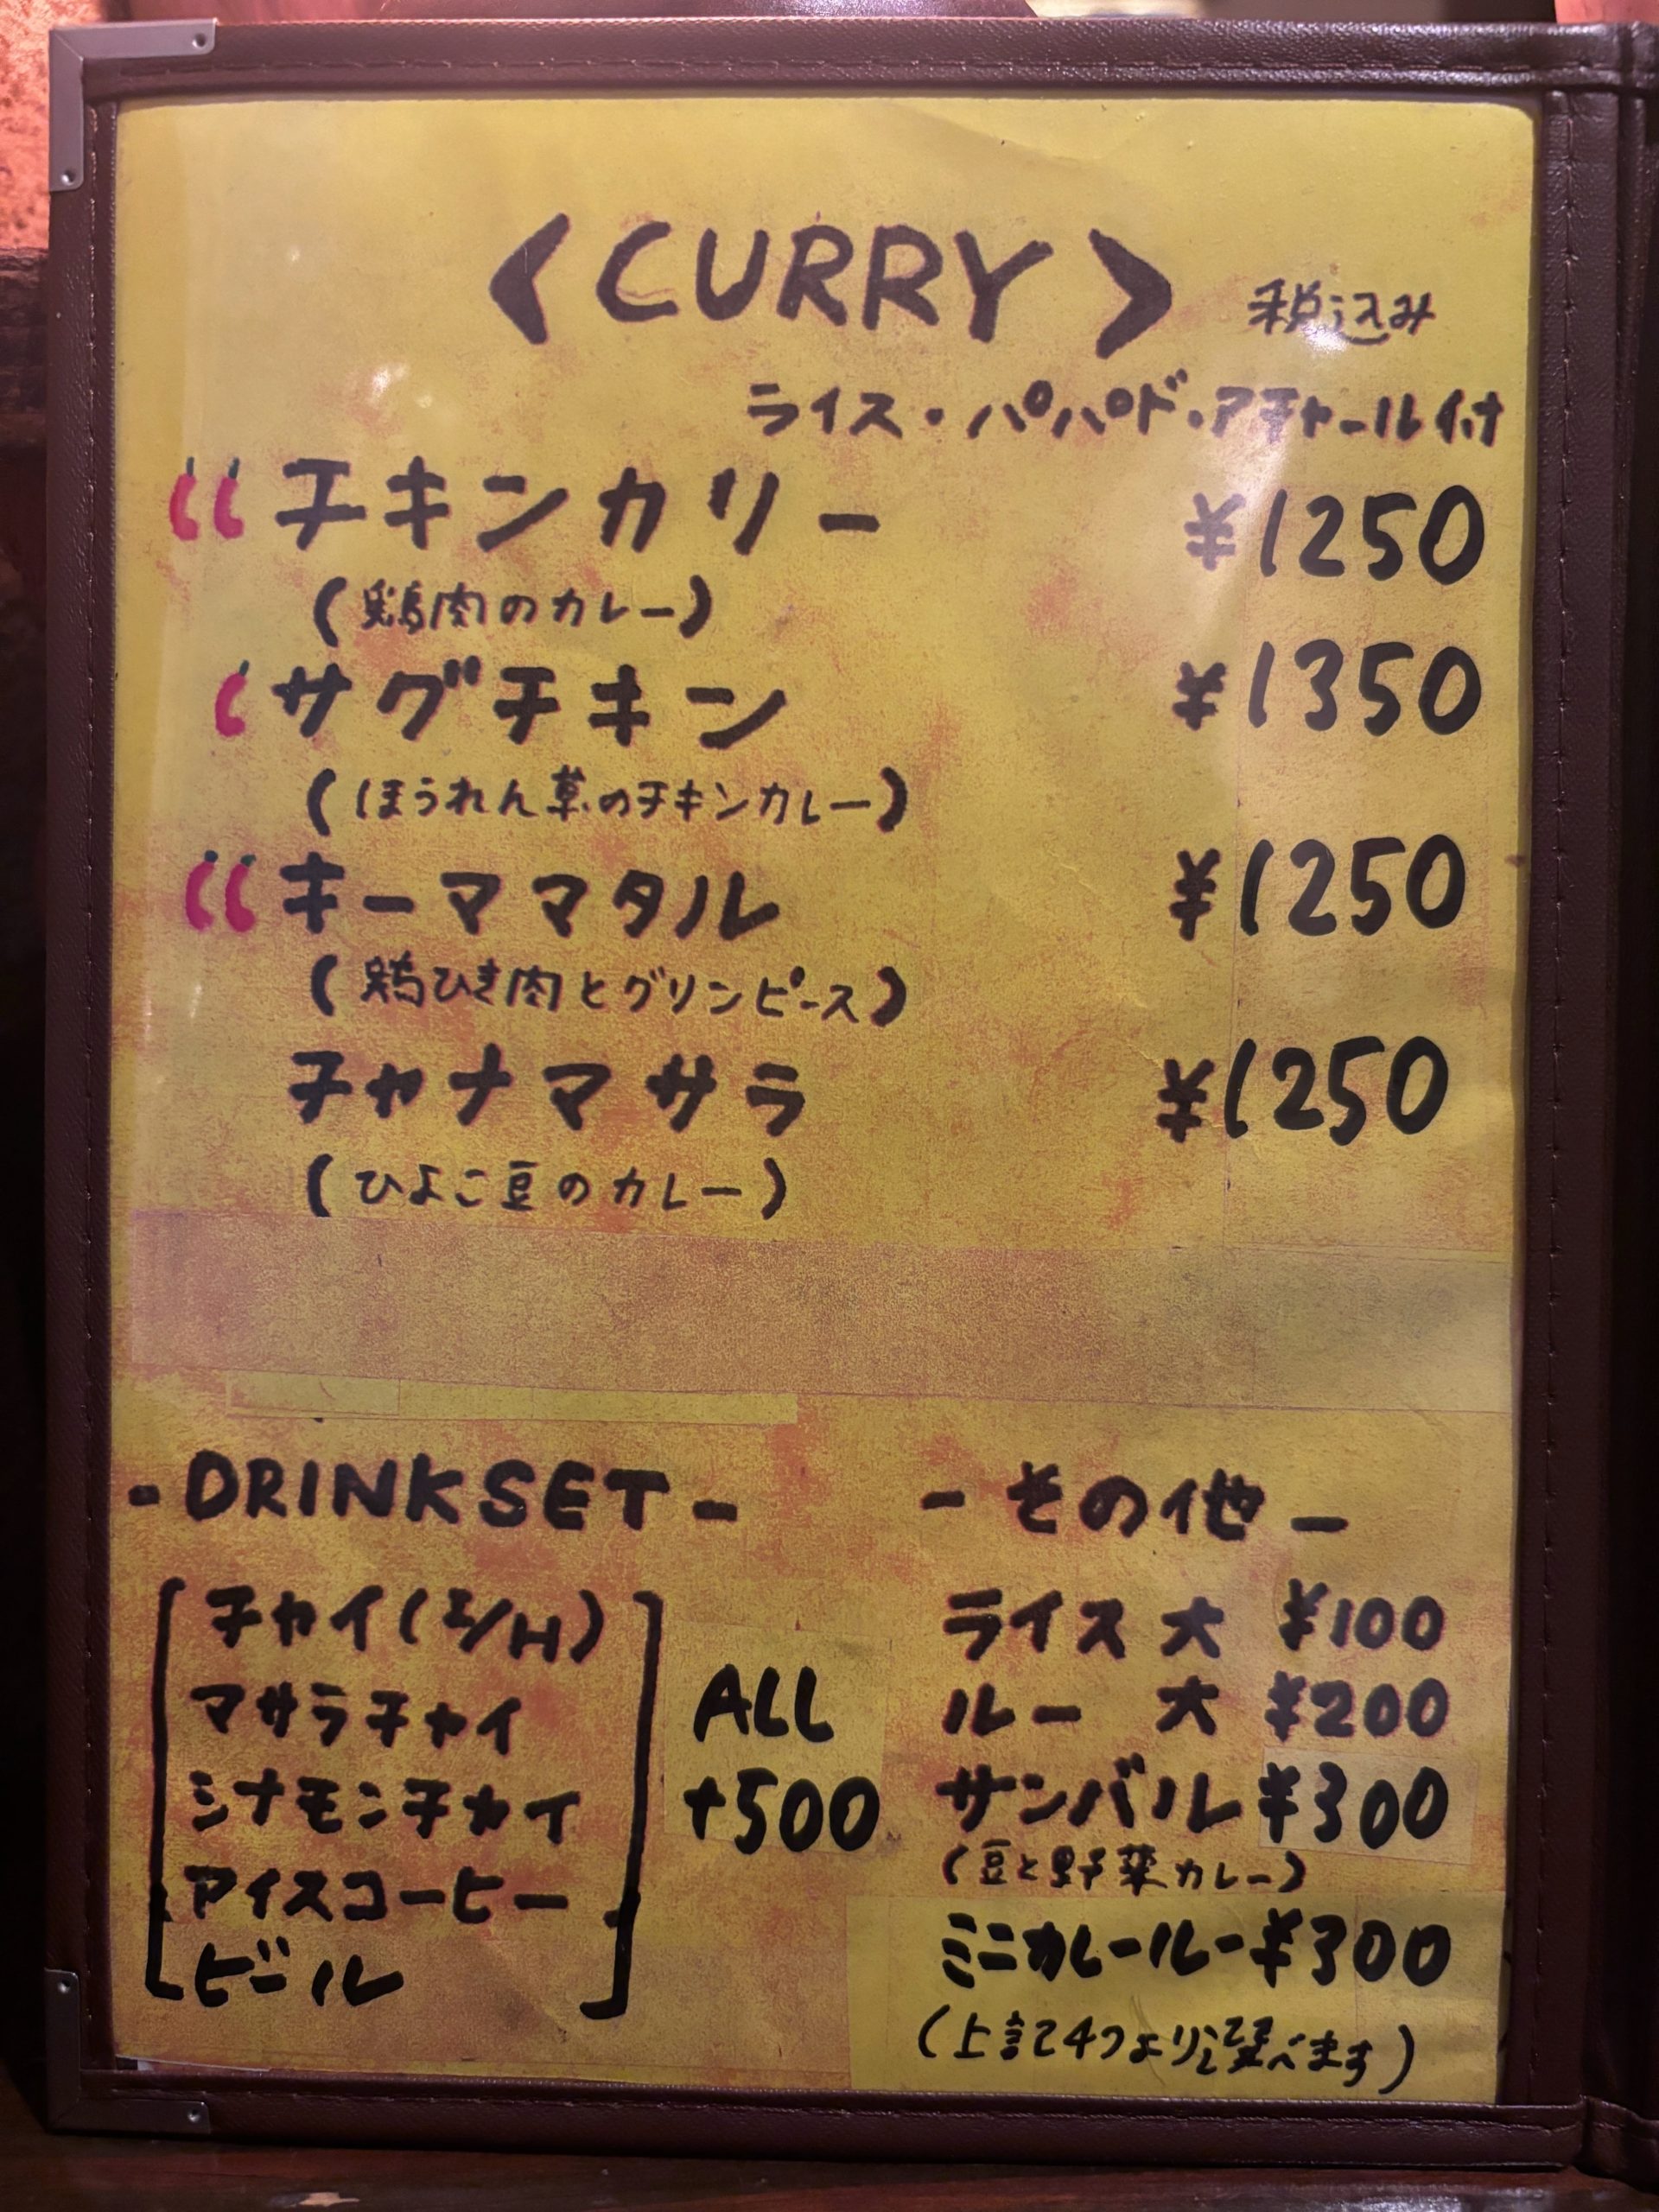 〈CURRY〉 税込み
ライス・パパド・アチャール付
チキンカリー ¥1250
(鶏肉のカレー)
サグチキン ¥1350
(ほうれん草のチキンカレー)
キーママタル ¥1250
(鶏ひき肉とグリンピース)
チャナマサラ ¥1250
(ひよこ豆のカレー)
-DRINKSET-
チャイ(I/H)
マサラチャイ
シナモンチャイ
アイスコーヒー
ビール
ALL
+500
-その他-
ライス 大 ¥100
ルー 大 ¥200
サンバル ¥300
(豆と野菜カレー)
ミニカレールー ¥300
(上記4つより選べます)